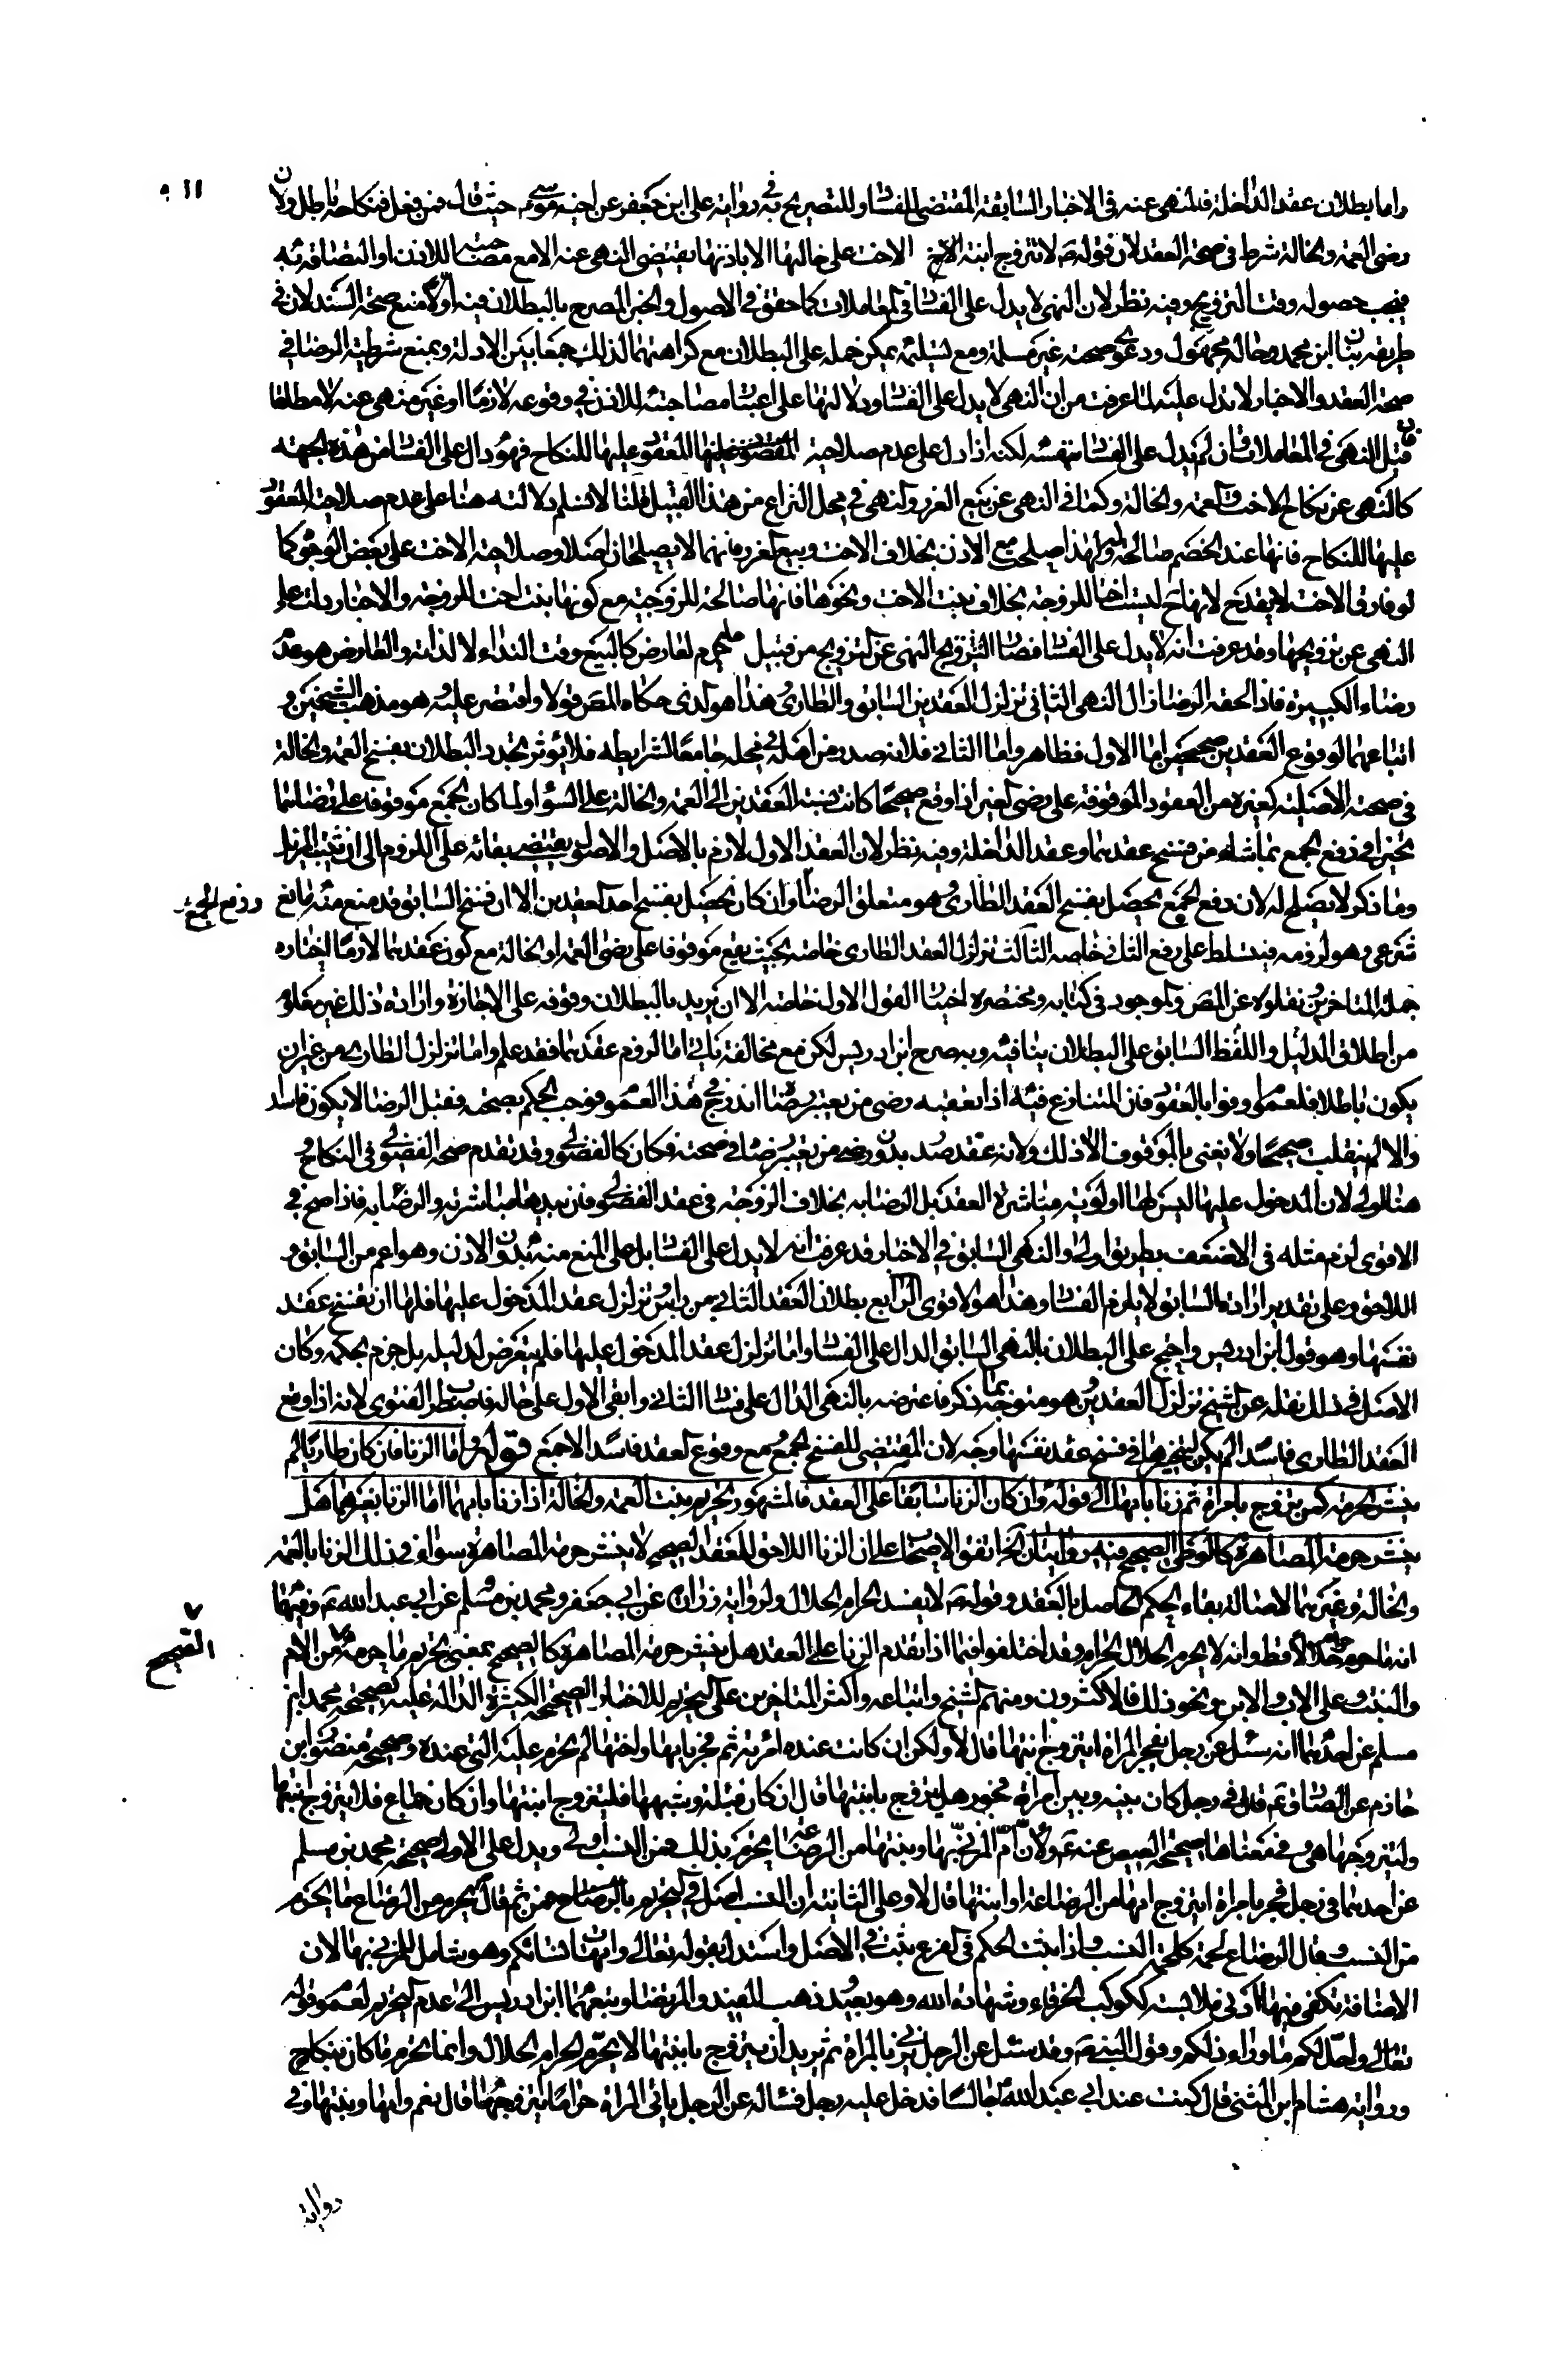 واما بطلان عقد الداخلة فللنهى عنه فى الاخبار السابقة المقتضى للفساد وللتصريح به فى رواية على ابن جعفر عن اخيه موسى ع حيث قال فمن فعل فنكاحه باطل ولان
رضى العمة والخالة شرط فى صحة العقد لان قوله ص لا تزوج ابنة الاخ الاخت على خالتها الا باذنها يقتضى النهى عنه الا مع مصاحبته للاذن او التصاقه به
فيجب حصوله وقت التزويج وفيه نظر لان النهى لا يدل على الفساد فى المعاملات كما حقق فى الاصول والخبر المصرح بالبطلان فيه اولا منع صحة السند لان فى
طريقه بنان ابن محمد وحاله مجهول ودعوى صحته غير مسلمة ومع تسليمه يمكن حمله على البطلان مع كراهتهما لذلك جمعا بين الادلة ويمنع شرطية الرضا فى
صحة العقد والاخبار لا تدل عليه لما عرفت من ان النهى لا يدل على الفساد ودلالتها على اعتبار مصاحبته للاذن فى وقوعه لازما او غير منهى عنه لا مطلقا
فان قيل النهى فى المعاملات وان لم يدل على الفساد بنفسه لكنه اذا دل على عدم صلاحية المعقود عليها للنكاح فهو دال على الفساد من هذه الجهة
كالنهى عن نكاح الاخت والعمة والخالة وكما فى النهى عن بيع الغرر والنهى فى محل النزاع من هذا القبيل قلنا لا نسلم دلالته هنا على عدم صلاحية المعقود
عليها للنكاح فانها عند الخصم صالحة ولهذا صلح مع الاذن بخلاف الاخت وبيع الغرر فانهما لا يصلحان اصلا وصلاحية الاخت على بعض الوجوه كما
لو فارق الاخت لا يقدح لانها ح ليست اختا للزوجة بخلاف بنت الاخت ونحوها فانها صالحة للزوجية مع كونها بنت اخت الزوجة والاخبار دلت على
النهى عن تزويجها وقد عرفت انه لا يدل على الفساد فصار التزويج النهى عن التزويج من قبيل ما يحرم لعارض كالبيع وقت النداء لا لذاته والعارض هو عدم
رضاء الكبيرة فاذا لحقه الرضا زال النهى الثانى تزلزل العقدين السابق والطارى وهذا هو الذى حكاه المص قولا واقتصر عليه وهو مذهب الشيخين و
اتباعهما لوقوع العقدين صحيحين اما الاول فظاهر واما الثانى فلانه صدر من اهله فى محله جامعا لشرايطه فلا يؤثر تجدد البطلان بفسخ العمة والخالة
فى صحته الاصلية كغيره من العقود الموقوفة على رضى الغير اذا وقع صحيحا كانت نسبة العقدين الى العمة والخالة على السواء ولما كان الجمع موقوفا على رضاهما
تخيرا فى رفع الجمع بما شاءا من فسخ عقدهما وعقد الداخلة وفيه نظر لان العقد الاول لازم بالاصل والاصل يقتضى بقائه على اللزوم الى ان يثبت المزيل
وما ذكر لا يصلح له لان رفع الجمع يحصل بفسخ العقد الطارى وهو متعلق الرضا وان كان يحصل بفسخ احد العقدين الا ان فسخ السابق قد منع منه مانع
ورفع الجمع
شرعى وهو لزومه فيتسلط على رفع الثانى خاصة الثالث تزلزل العقد الطارى خاصة بحيث يقع موقوفا على رضى العمة او الخالة مع كون عقدهما لازما اختاره
جملة المتاخرين ونقلوه عن المص والموجود فى كتابه ومختصره اختيار القول الاول خاصة الا ان يريد بالبطلان وقوفه على الاجازة وارادة ذلك غير معلوم
من اطلاق الدليل واللفظ السابق على البطلان ينافيه وبه صرح ابن ادريس لكن مع مخالفة تاتى اما لزوم عقدهما فقد علم واما تزلزل الطارى من غير ان
يكون باطلا فلعموم اوفوا بالعقود فان المتنازع فيه اذا تعقبه رضى من يعتبر رضاه اندرج فى هذا العموم فوجب الحكم بصحته فقبل الرضا لا يكون فاسدا
والا لم ينقلب صحيحا ولا يعنى بالموقوف الا ذلك ولانه عقد صدر بدون رضى من يعتبر رضاه فى صحته فكان كالفضولى وقد تقدم صحة الفضولى فى النكاح و
هنا اولى لان المدخول عليها ليس لها اولوية مباشرة العقد بل الرضا به بخلاف الزوجة فى عقد الفضولى فان بيدها مباشرته والرضا به فاذا صح فى
الاقوى لزم مثله فى الاضعف بطريق اولى والنهى السابق فى الاخبار قد عرفت انه لا يدل على الفساد بل على المنع منه بدون الاذن وهو اعم من السابق و
اللاحق وعلى تقدير ارادة السابق لا يلزم الفساد وهذا هو الاقوى الرابع بطلان العقد الثانى من راس وتزلزل عقد المدخول عليها فلها ان تفسخ عقد
نفسها وهو قول ابن ادريس واحتج على البطلان بالنهى السابق الدال على الفساد واما تزلزل عقد المدخول عليها فلم يتعرض لدليله بل جزم بحكمه وكان
الاصل فى ذلك نقله عن الشيخ تزلزل العقدين وهو متوجه بما ذكر فاعترضه بالنهى الدال على فساد الثانى وابقى الاول على حاله فاضطر الفتوى لانه اذا وقع
العقد الطارى فاسدا لم يكن لتخييرها فى فسخ عقد نفسها وجه لان المقتضى للفسخ الجمع ومع وقوع العقد فاسدا لا جمع قوله واما الزنا فان كان طاريا لم
ينشر الحرمة كمن تزوج بامراة ثم زنا بامها الى قوله وان كان الزنا سابقا على العقد فالمشهور تحريم بنت العمة والخالة اذا زنا بامهما اما الزنا بغيرهما هل
ينشر حرمة المصاهرة كالوطى الصحيح فيه روايتان الخ اتفق الاصحاب على ان الزنا اللاحق للعقد الصحيح لا ينشر حرمة المصاهرة سواء فى ذلك الزنا بالعمة
والخالة وغيرهما لاصالة بقاء الحكم الحاصل بالعقد وقوله ص لا يفسد الحرام الحلال ولرواية زرارة عن ابى جعفر ومحمد بن مسلم عن ابى عبد الله ع وفيهما
انه ما حرم حرام حلالا قط وانه لا يحرم الحلال الحرام وقد اختلفوا فيما اذا تقدم الزنا على العقد هل ينشر حرمة المصاهرة كالصحيح بمعنى تحريم ما حرمه من الام
الصحيح
والبنت وعلى الاب والابن ونحو ذلك فالاكثرون ومنهم الشيخ واتباعه واكثر المتاخرين على التحريم للاخبار الصحيحة الكثيرة الدالة عليه كصحيحة محمد ابن
مسلم عن احدهما انه سئل عن رجل يفجر بالمراة ايتزوج ابنتها قال لا ولكن ان كانت عنده امراة ثم فجر بامها واختها لم يحرم عليه التى عنده وصحيحة منصور ابن
حازم عن الصادق ع قال فى رجل كان بينه وبين امراة فجور هل يتزوج بابنتها قال ان كان قبلة وشبهها فليتزوج ابنتها وان كان جماع فلا يتزوج ابنتها
وليتزوجها هى وفى معناها صحيحة العيص عنه ع ولان ام المزنى بها وبنتها من الرضاعة يحرم بذلك فمن النسب اولى ويدل على الاولى صحيحة محمد بن مسلم
عن احدهما فى رجل فجر بامراة ايتزوج امها من الرضاعة او ابنتها قال لا وعلى الثانية ان النسب اصل فى التحريم بالرضاع ومن ثم قال يحرم من الرضاع ما يحرم
من النسب وقال الرضاع لحمة كلحمة النسب واذا ثبت الحكم فى الفرع يثبت فى الاصل واستدل بقوله تعالى وامهات نسائكم وهو شامل للمزنى بها لان
الاضافة تكفى فيها ادنى ملابسة ككوكب الخرقاء وشهادة الله وهو بعيد وذهب المفيد والمرتضى وتبعهما ابن ادريس الى عدم التحريم لعموم قوله
تعالى واحل لكم ما وراء ذلكم وقول النبى ص وقد سئل عن الرجل يزنى بالمراة ثم يريد ان يتزوج بابنتها لا يحرم الحرام الحلال وانما يحرم ما كان بنكاح
ورواية هشام ابن المثنى قال كنت عند ابى عبد الله ع جالسا فدخل عليه رجل فساله عن الرجل ياتى المراة حراما ايتزوجها قال نعم وامها وبنتها وفى
رواية